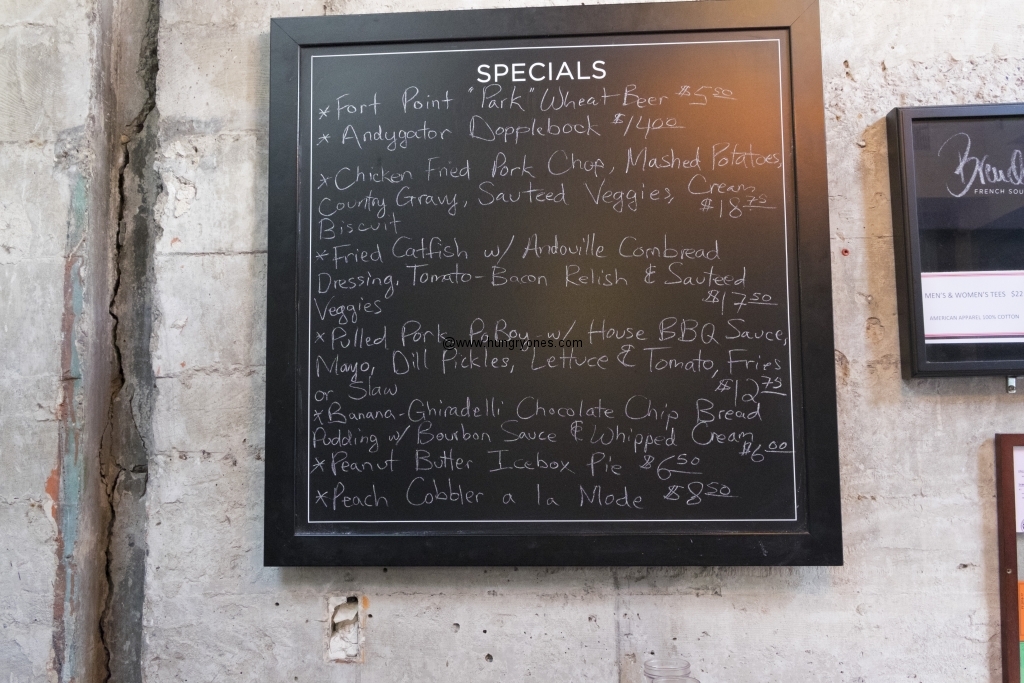 SPECIALS
* Fort Point "Park" Wheat Beer $5.50
* Andygator Dopplebock $14.00
* Chicken Fried Pork Chop, Mashed Potatoes,
Country Gravy, Sauteed Veggies, Cream
Biscuit $18.75
* Fried Catfish w/ Andouille Cornbread
Dressing, Tomato-Bacon Relish & Sauteed
Veggies $17.50
* Pulled Pork PoBoy w/ House BBQ Sauce,
Mayo, Dill Pickles, Lettuce & Tomato, Fries
or Slaw $12.75
* Banana-Ghiradelli Chocolate Chip Bread
Pudding w/ Bourbon Sauce & Whipped Cream $6.00
* Peanut Butter Icebox Pie $6.50
* Peach Cobbler a la Mode $8.50
@www.hungryones.com
FRENCH SOU
MEN'S & WOMEN'S TEES $22
AMERICAN APPAREL 100% COTTON